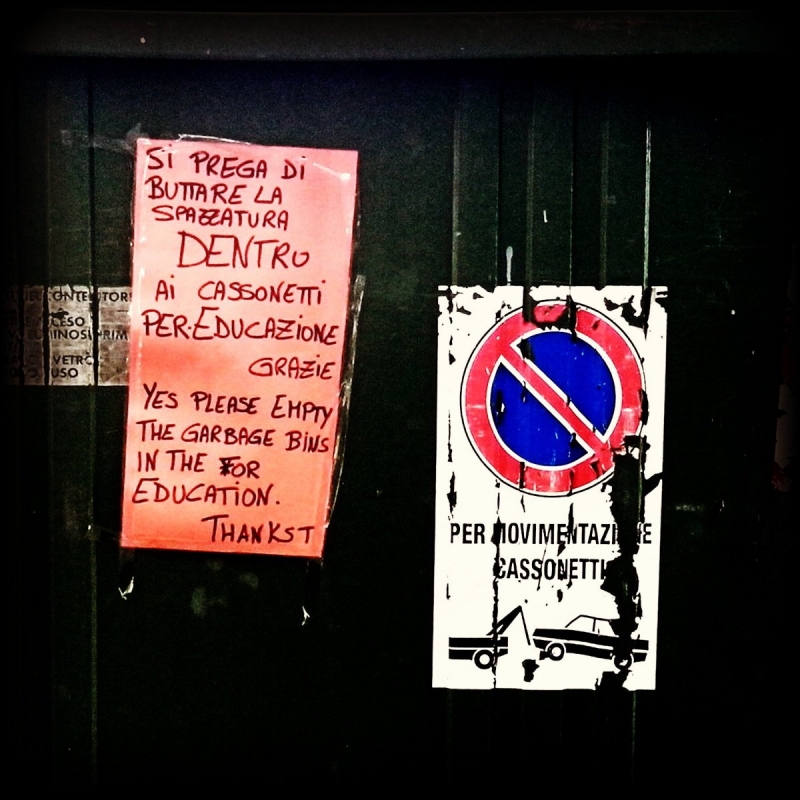 SI PREGA DI
BUTTARE LA
SPAZZATURA
DENTRO
AI CASSONETTI
PER·EDUCAZIONE
GRAZIE
YES PLEASE EMPTY
THE GARBAGE BINS
IN THE FOR
EDUCATION.
THANKST
VETRO
USO
PER MOVIMENTAZIONE
CASSONETTI